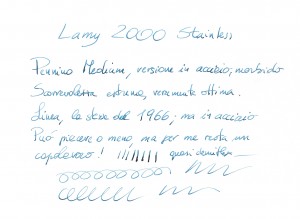 Lamy 2000 Stainless
Pennino Medium, versione in acciaio; morbido
Scorrevolezza estrema, veramente ottima.
Linea, la stessa del 1966; ma in acciaio
Può piacere o meno, ma per me resta un
capolavoro! quasi